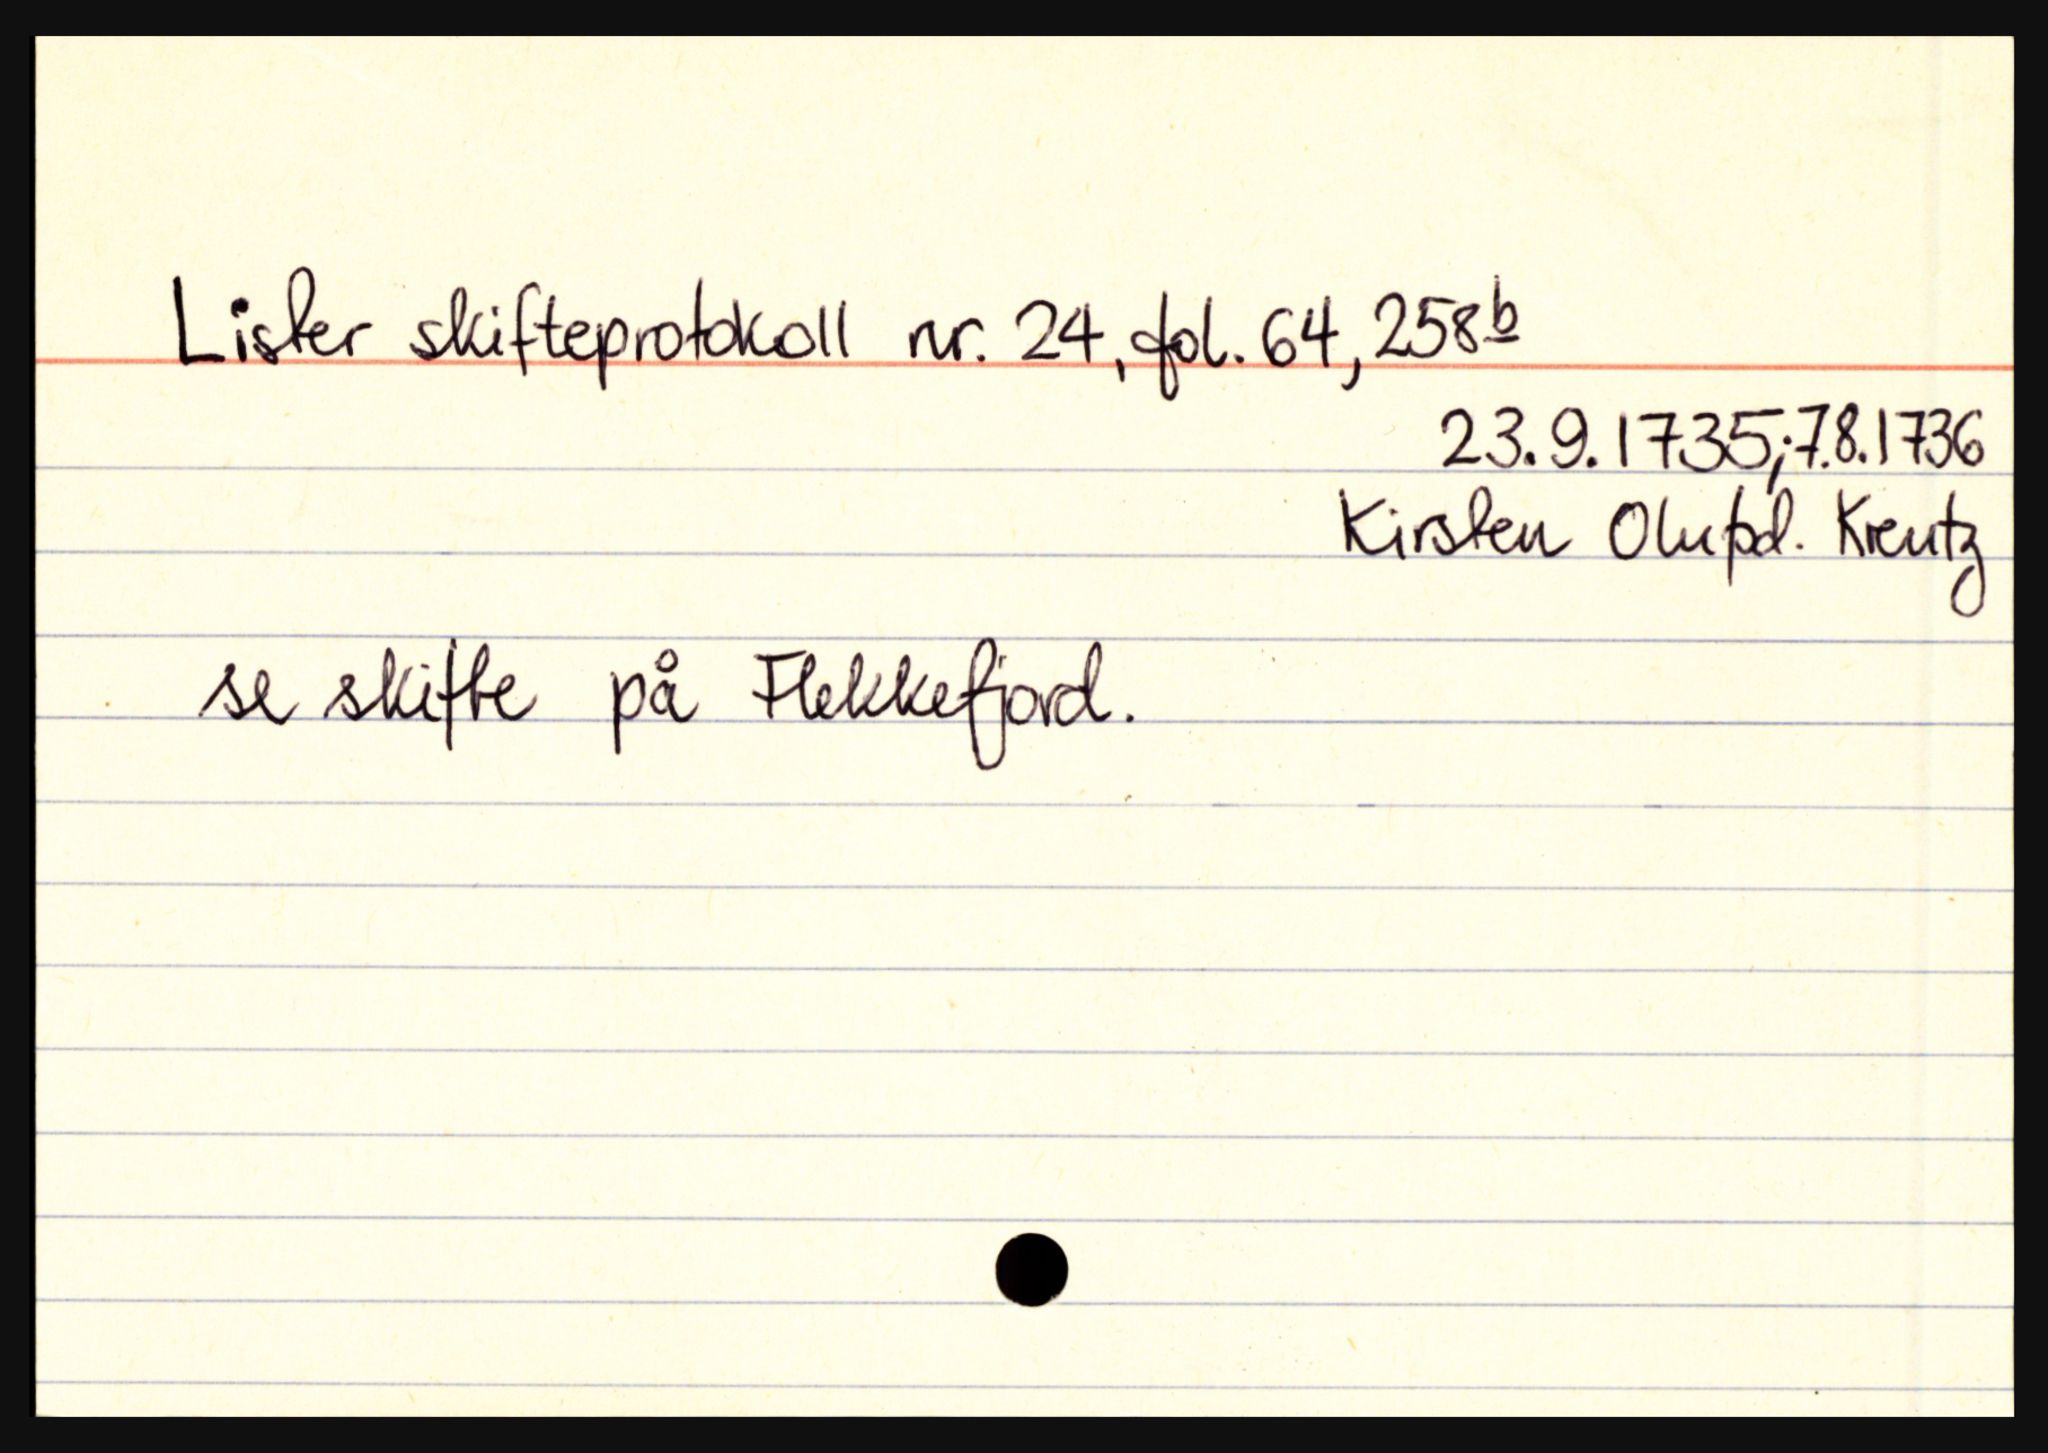 Lister skifteprotokoll nr. 24, fol. 64, 258b
23.9.1735; 7.8.1736
Kirsten Olufsd. Kreutz
se skifte på Flekkefjord.